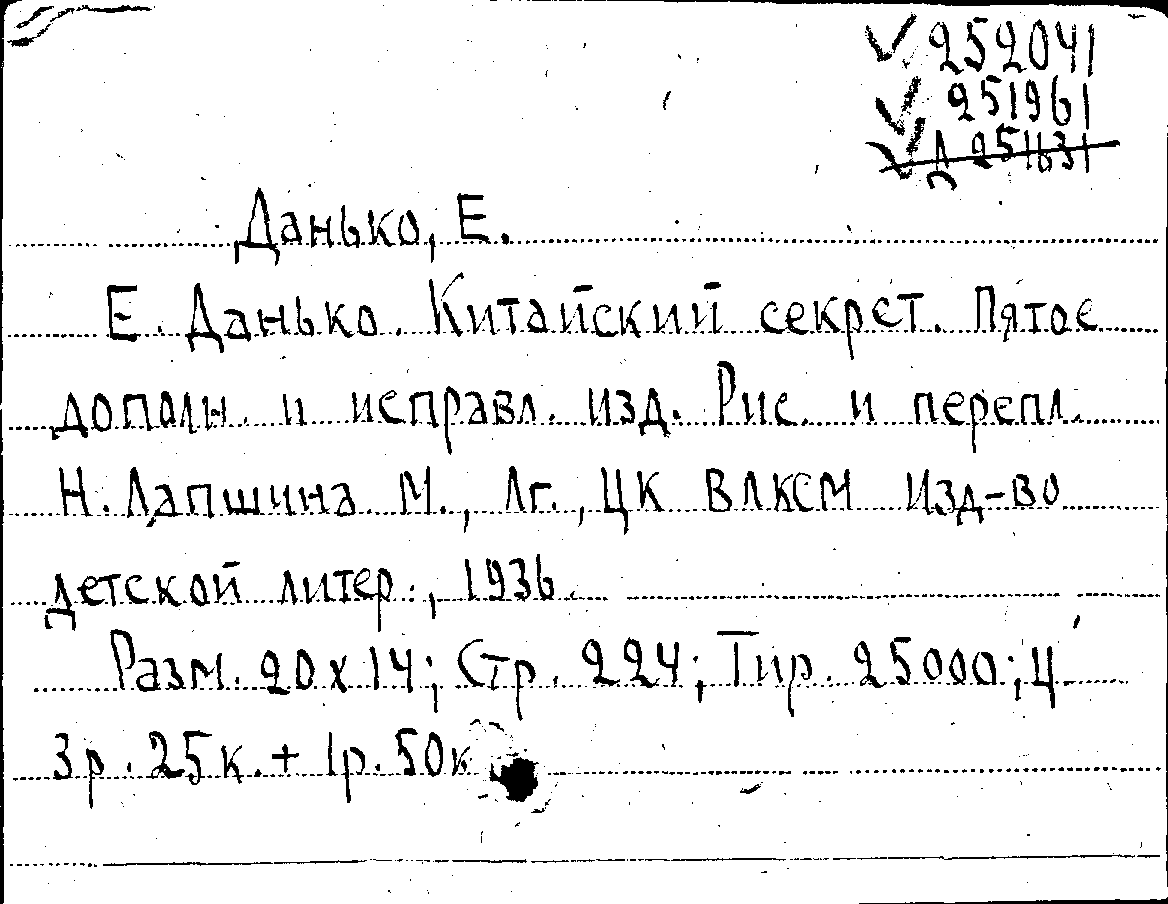 ✓ 252041
✓ 251961
✓ Д 251831
Данько, Е.
Е. Данько. Китайский секрет. Пятое
дополн. и исправл. изд. Рис. и перепл.
Н. Лапшина. М., Лг., ЦК ВЛКСМ Изд-во
детской литер., 1936.
Разм. 20х14; Стр. 224; Тир. 25000; Ц.
3р. 25к. + 1р. 50к